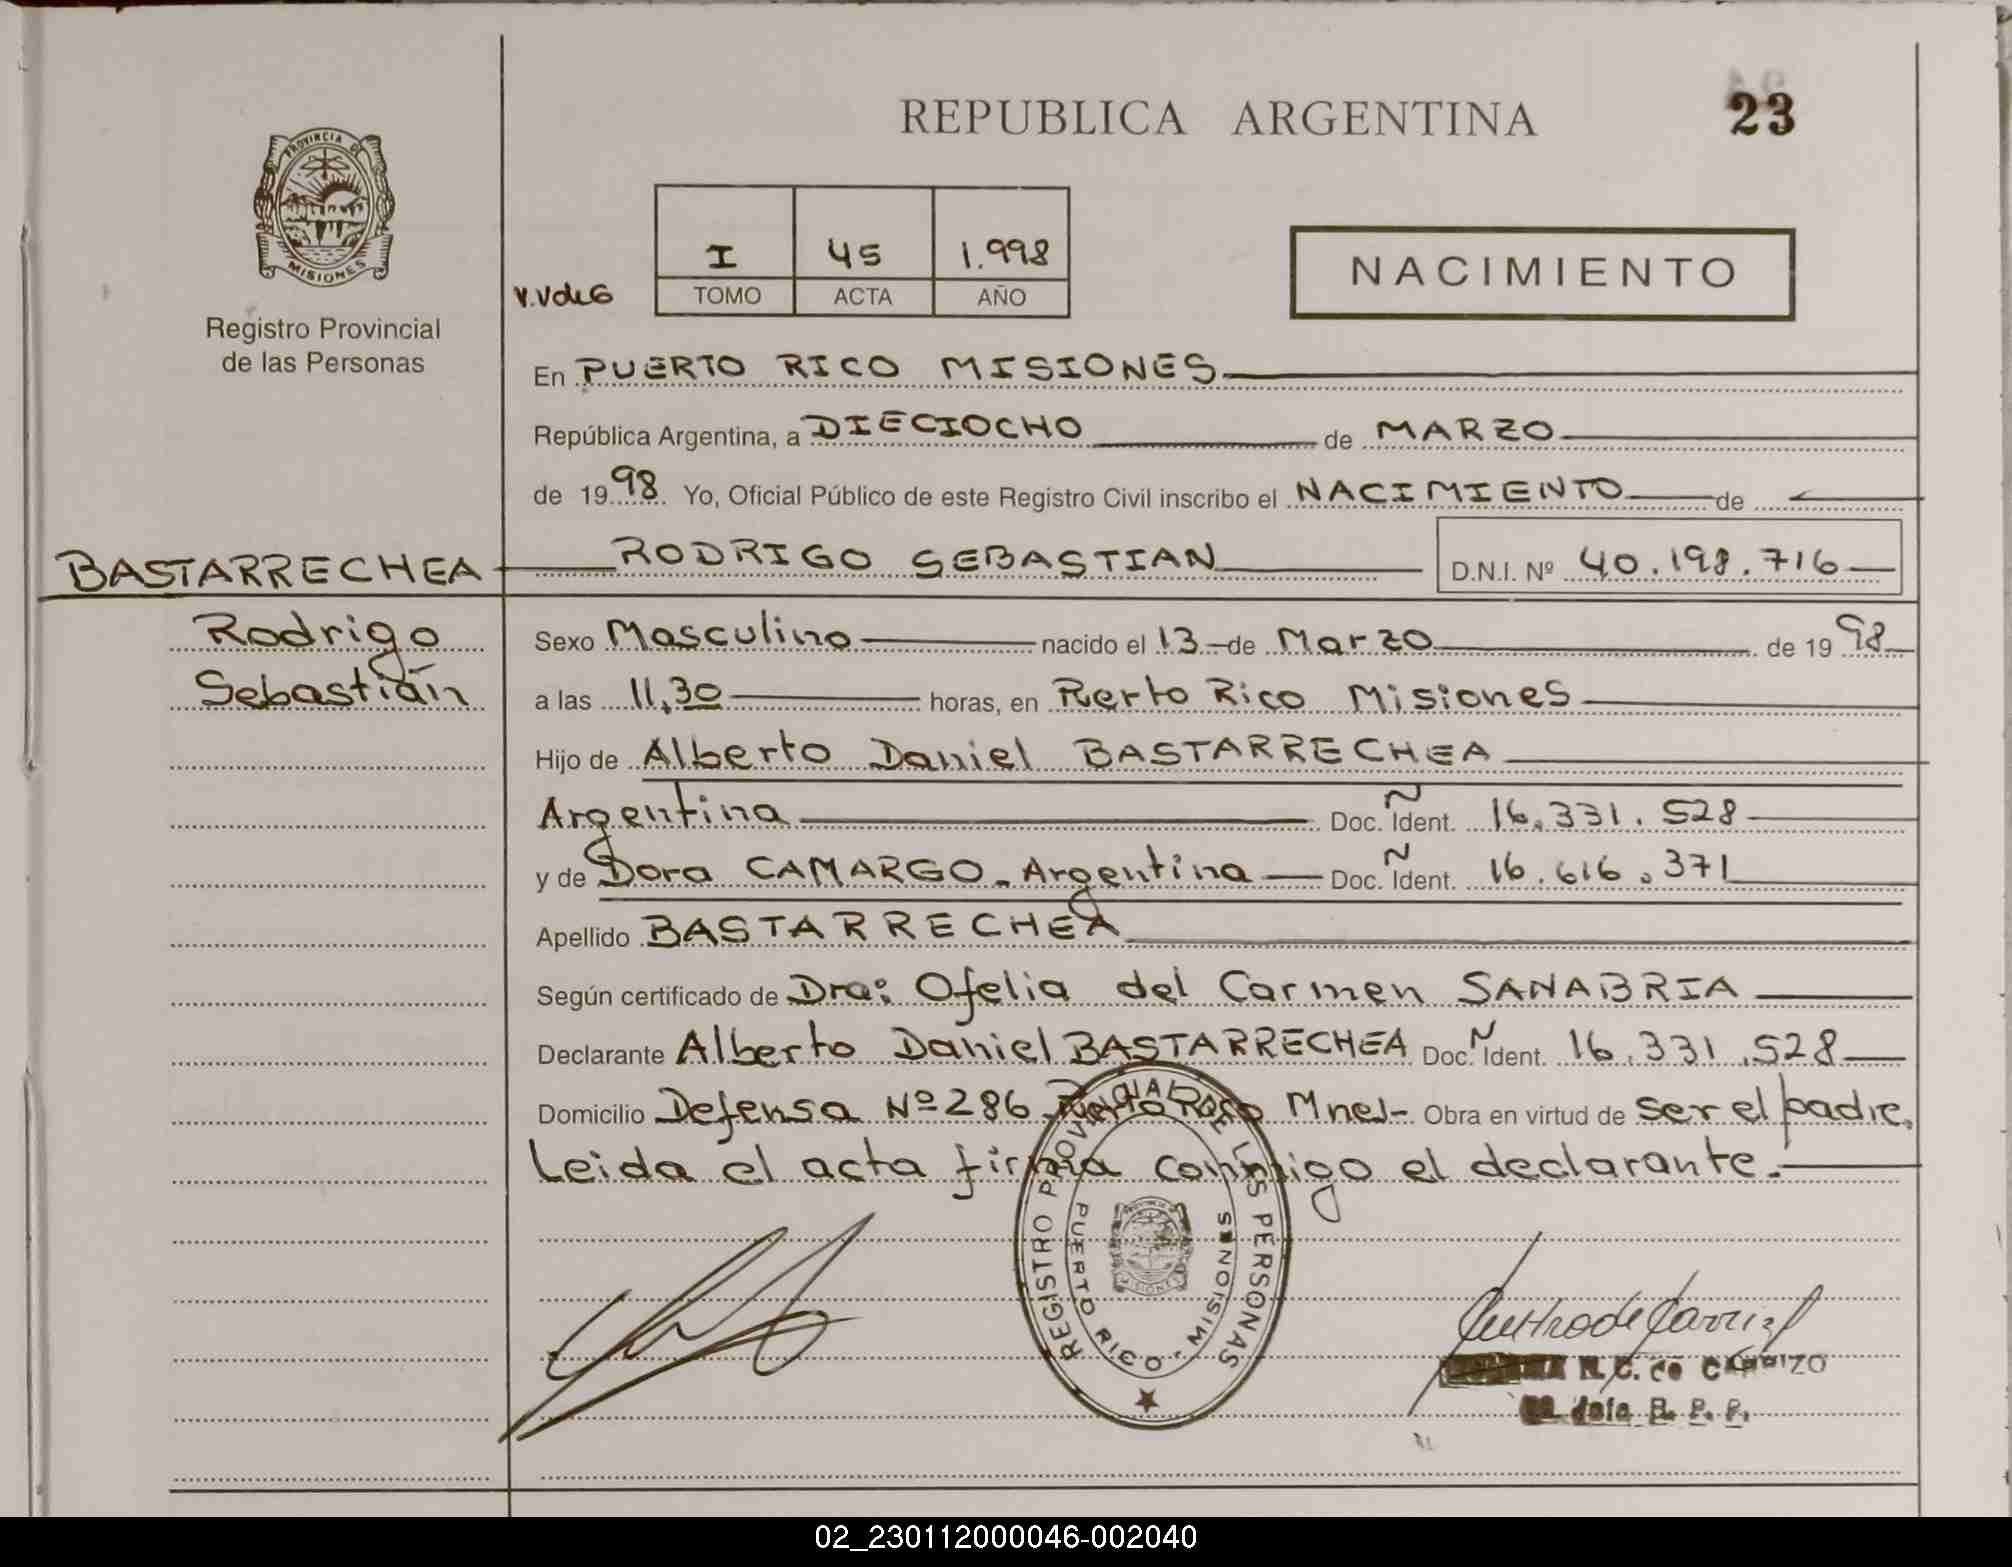 REPUBLICA ARGENTINA
23
PROVINCIA DE
MISIONES
Registro Provincial
de las Personas
V.VdeG
I 45 1.998
TOMO ACTA AÑO
NACIMIENTO
En PUERTO RICO MISIONES
República Argentina, a DIECIOCHO de MARZO
de 1998. Yo, Oficial Público de este Registro Civil inscribo el NACIMIENTO de
BASTARRECHEA RODRIGO SEBASTIAN D.N.I. Nº 40.198.716
Rodrigo
Sebastián
Sexo Masculino nacido el 13 de Marzo de 1998
a las 11,30 horas, en Puerto Rico Misiones
Hijo de Alberto Daniel BASTARRECHEA
Argentina Doc. Ident. 16.331.528
y de Dora CAMARGO. Argentina Doc. Ident. 16.616.371
Apellido BASTARRECHEA
Según certificado de Dra: Ofelia del Carmen SANABRIA
Declarante Alberto Daniel BASTARRECHEA Doc. Ident. 16.331.528
Domicilio Defensa Nº 286 Puerto Rico Mnes- Obra en virtud de ser el padre,
Leida el acta firma conmigo el declarante.-
REGISTRO PROVINCIAL DE LAS PERSONAS
PUERTO RICO - MISIONES
MISIONES
N. C. de CARRIZO
Jefe R. P. P.
02_230112000046-002040